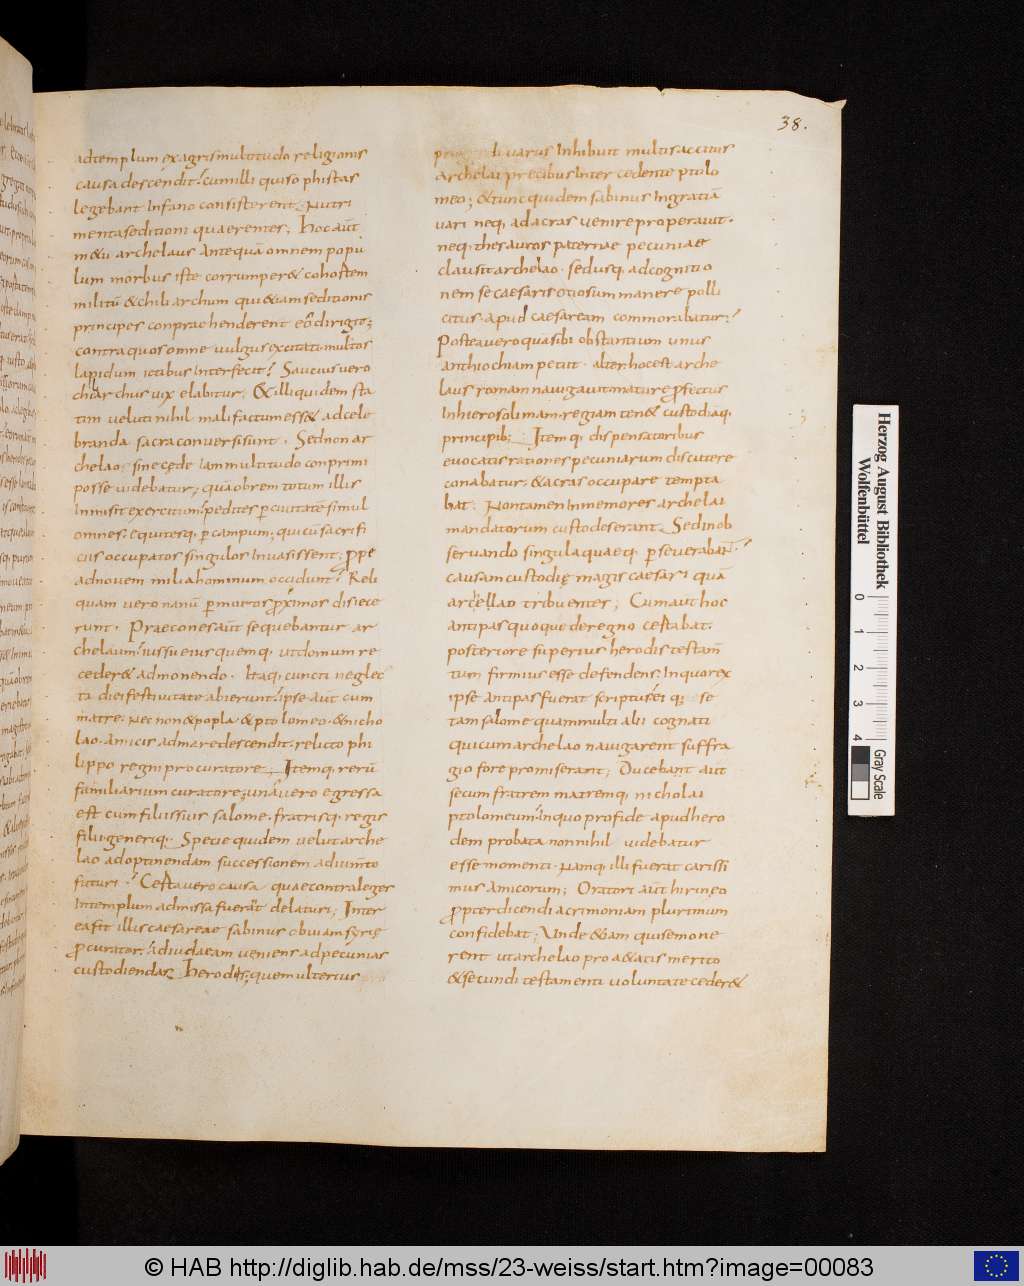 38.
ad templum ex agris multitudo religionis
causa descendit. cum illi quis o phistas
legebant In fano consisterent. Nutri
menta seditioni quaerentes; Hoc aut
metu archelaus Antequā omnem popu
lum morbus iste corrumper& cohostem
militū & chiliarchum qui & iam seditionis
principes conpraehenderent eo dirigit;
contra quos omne vulgus excitati multos
lapidum ictibus Interfecit? Saucius vero
chiliarchus vix elabitur; & illi quidem sta
tim veluti nihil mali factum ess& ad cele
branda sacra conversi sunt. Sed non ar
chelao sine cede Iam multitudo conprimi
posse videbatur; quā obrem totum illis
Inmisit exercitum; pedites p civitate simul
omnes. equitesq. p campum; qui cū sacrifi
ciis occupatos singulos Invasissent; prope
ad novem milia hominum occidunt? Reli
quam vero manū p montes proximos disiece
runt. Praecones aūt sequebantur ar
chelaum! iussu eius quemq. ut domum re
ceder& admonendo. Itaq. cuncti neglec
ta diei festivitate abierunt! ipse aūt cum
matre. Nec non & popla. & ptolomeo. & nicho
lao. Amicis ad mare descendit. relicto phi
lippo regni procuratore; Itemq. rerū
familiarium curatore; unā vero egressa
est cum filiis suis salome. fratrisq. regis
filii. generiq. Specie quidem velut arche
lao adoptinendam successionem adiuūto
futuri? Certa vero causa quae contra leges
In templum admissa fuerant delaturi; Inter
ea fit illis caesareae sabinus obviam syrię
procurator. Adiudaeam veniens ad pecunias
custodiendas Herodis; quem ulterius
varus Inhibuit multis accitus
archelai precibus Intercedente ptolo
meo; & tunc quidem sabinus In gratiā
vari neq. ad acras venire properavit.
neq. thesauros paternae pecuniae
clausit archelao. sedusq. ad cognitio
nem se caesaris otiosum manere polli
citus. apud caesaream commorabatur?
Postea vero quasi bi obstantium unus
anthiochiam petiit. alter hoc est arche
laus romam navigavit mature profectus
In hierosolimam. regiam ten& custodiaq.
principib; Itemq. dispensatoribus
evocatis rationes pecuniarum discutere
conabatur. & acras occupare tempta
bat. Non tamen Inmemores archelai
mandatorum custodes erant. Sed in ob
servando singula quaeq. p severabant?
causam custodię magis caesari quā
archelao tribuentes; Cum aut hoc
antipas quoque de regno certabat.
posteriore superius herodis testam
tum firmius esse defendens. In quo rex
ipse antipas fuerat scriptus ei q; se
tam salome quam multi alii cognati
qui cum archelao navigarent suffra
gio fore promiserant; Ducebant aūt
secum fratrem matremq. nicholai
ptolomeum! in quo pro fide apud hero
dem probata non nihil videbatur
esse momenti. Namq. illi fuerat carissi
mus Amicorum; Oratori aūt hirineo
propter dicendi acrimoniam plurimum
confidebat; Unde & iam qui se mone
rent ut archelao pro a&atis merito
& secundi testamenti voluntate ceder&
Herzog August Bibliothek
Wolfenbüttel
0 1 2 3 4
Gray Scale
© HAB http://diglib.hab.de/mss/23-weiss/start.htm?image=00083